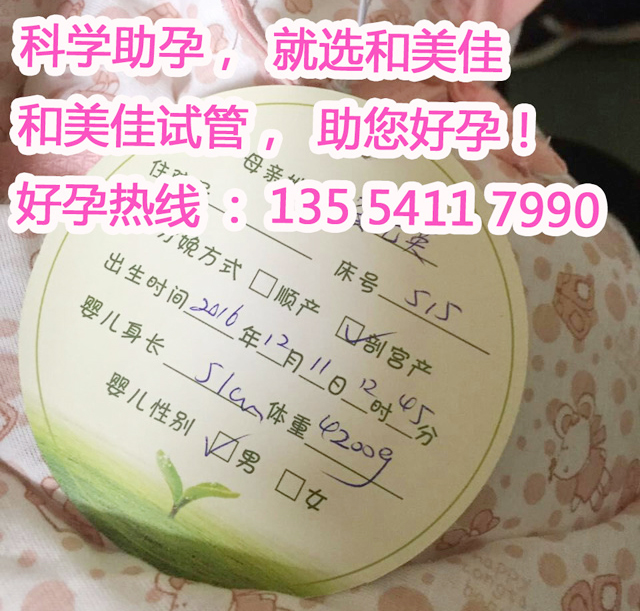 科学助孕， 就选和美佳
和美佳试管， 助您好孕！
好孕热线 ：135 5411 7990
母亲
床号 515
分娩方式 □顺产 ☑剖宫产
出生时间 2016 年 12 月 11 日 12 时 45 分
婴儿身长 51cm 体重 4200g
婴儿性别 ☑男 □女